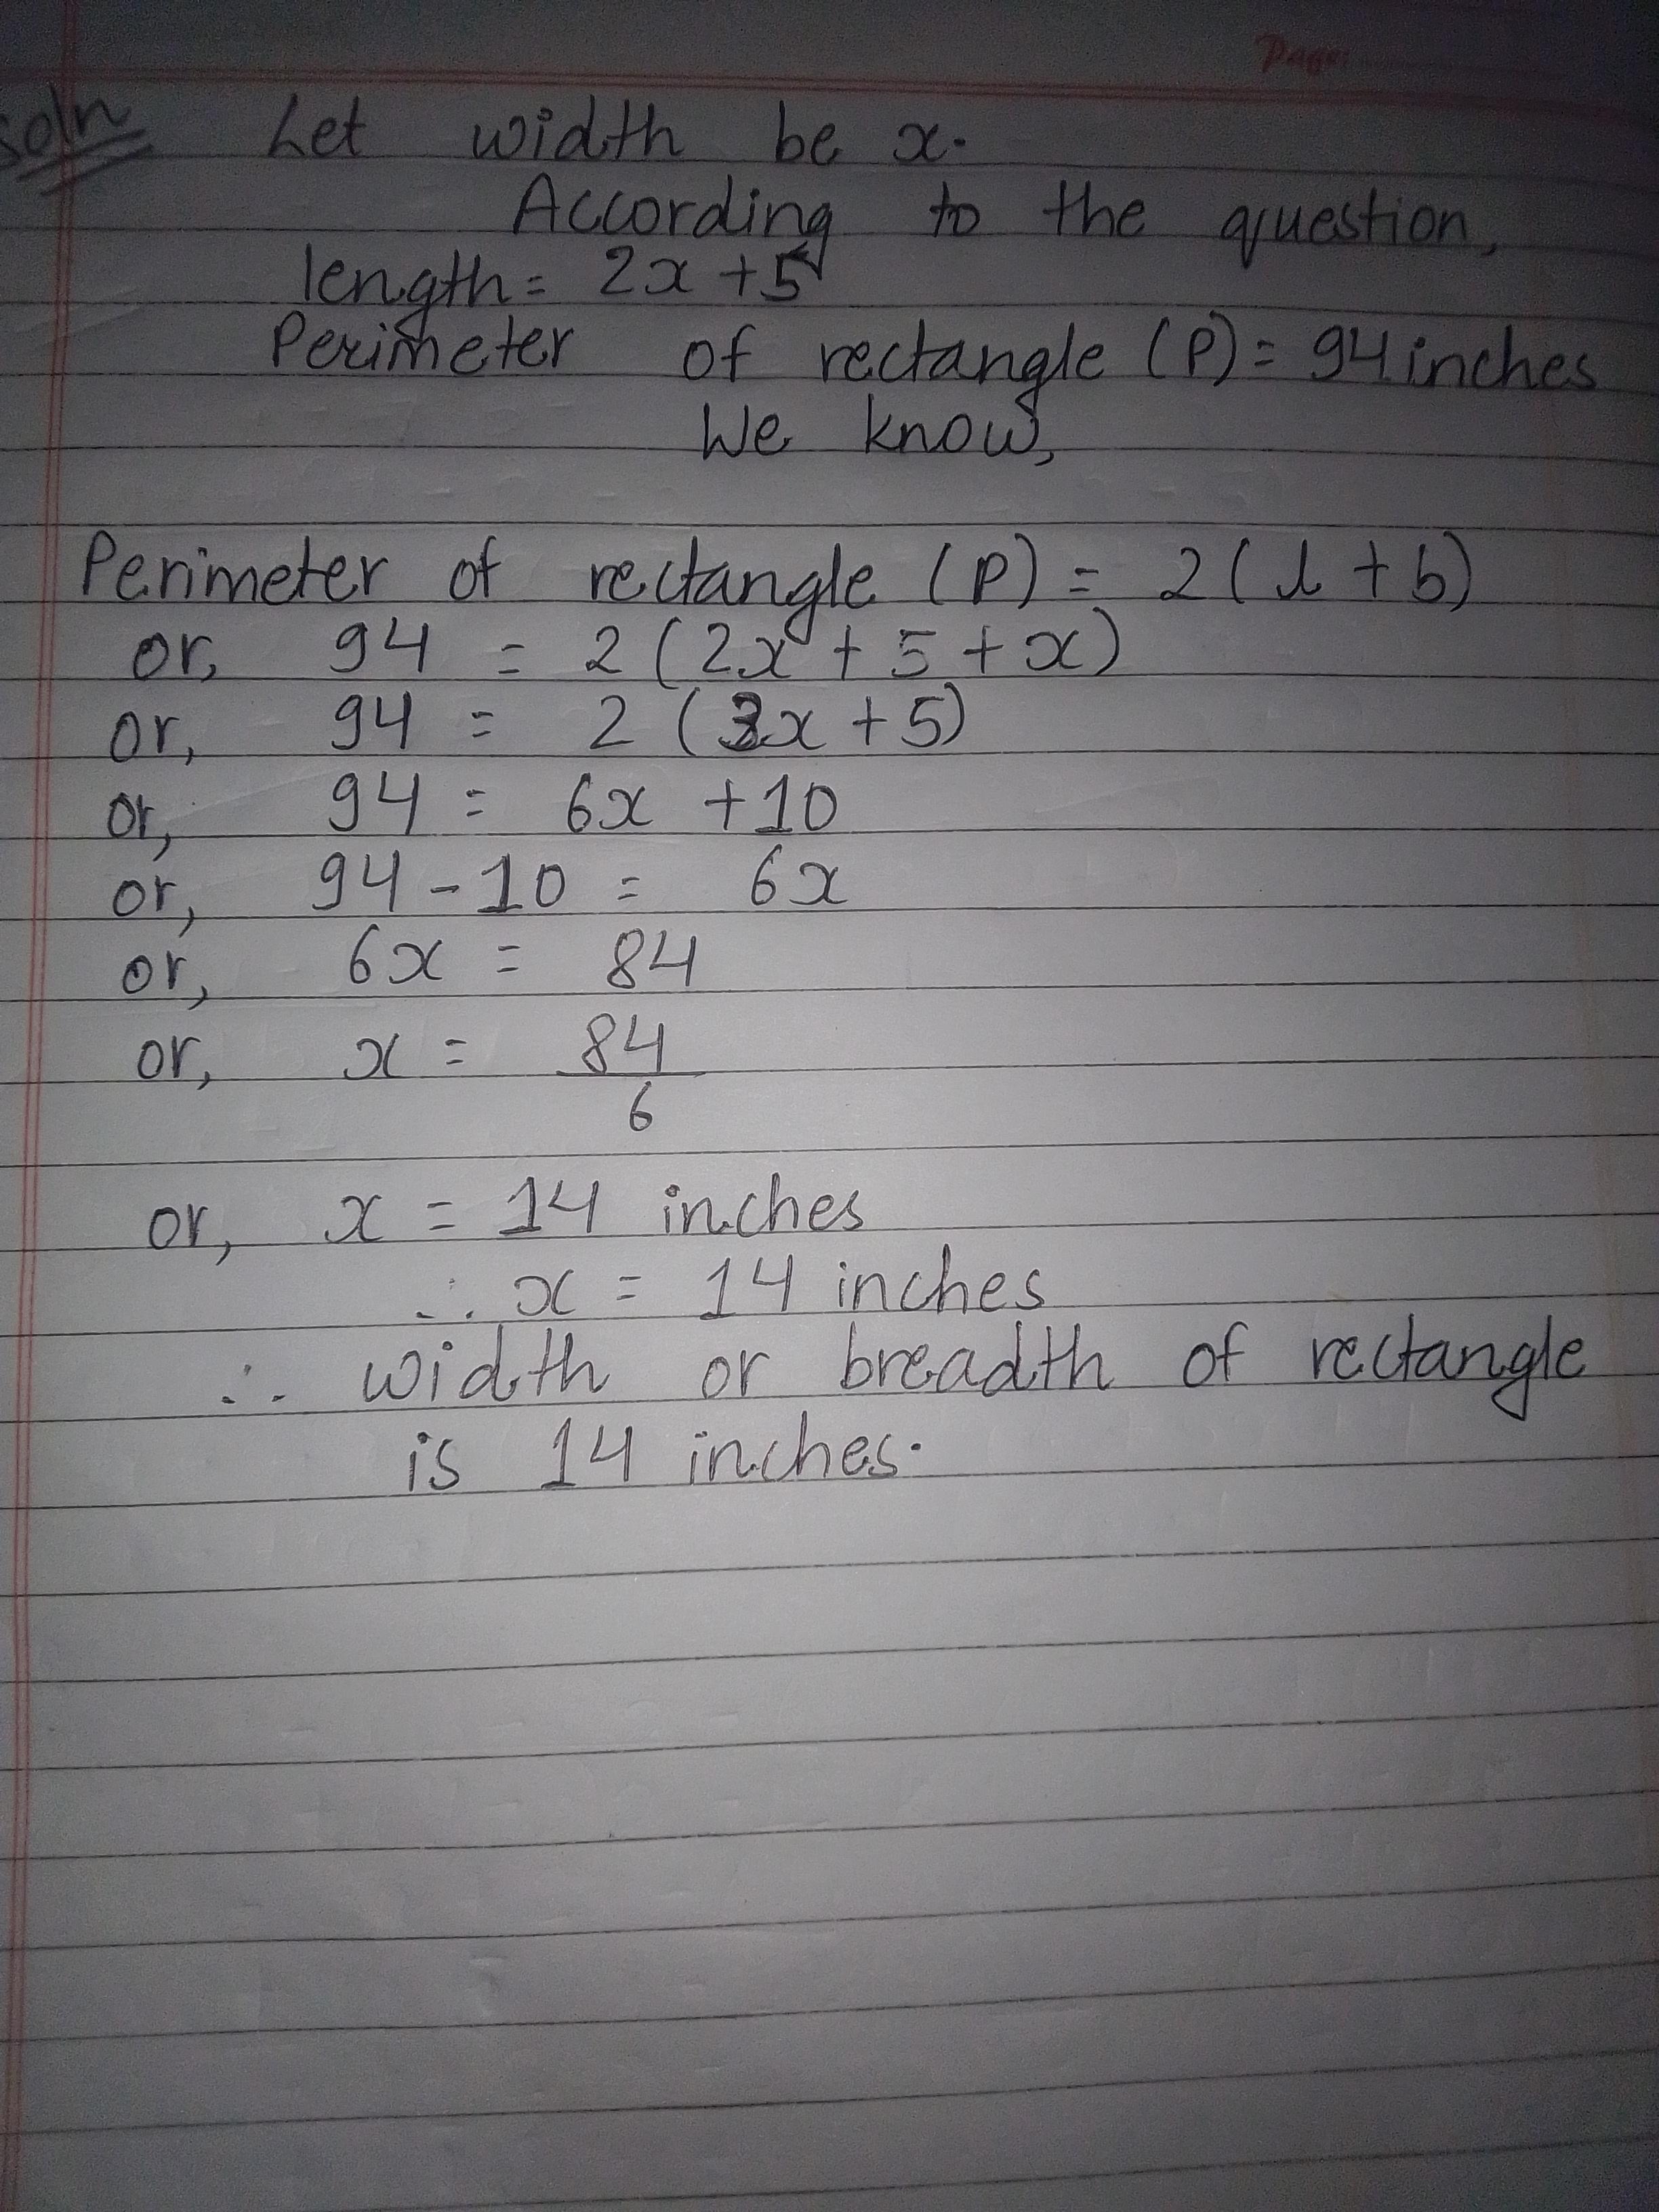 Page:
Soln Let width be x.
According to the question,
length = 2x + 5
Perimeter of rectangle (P) = 94 inches
We know,
Perimeter of rectangle (P) = 2(l + b)
or, 94 = 2(2x + 5 + x)
or, 94 = 2 (3x + 5)
or, 94 = 6x + 10
or, 94 - 10 = 6x
or, 6x = 84
or, x = 84
6
or, x = 14 inches
∴ x = 14 inches
∴ width or breadth of rectangle
is 14 inches.